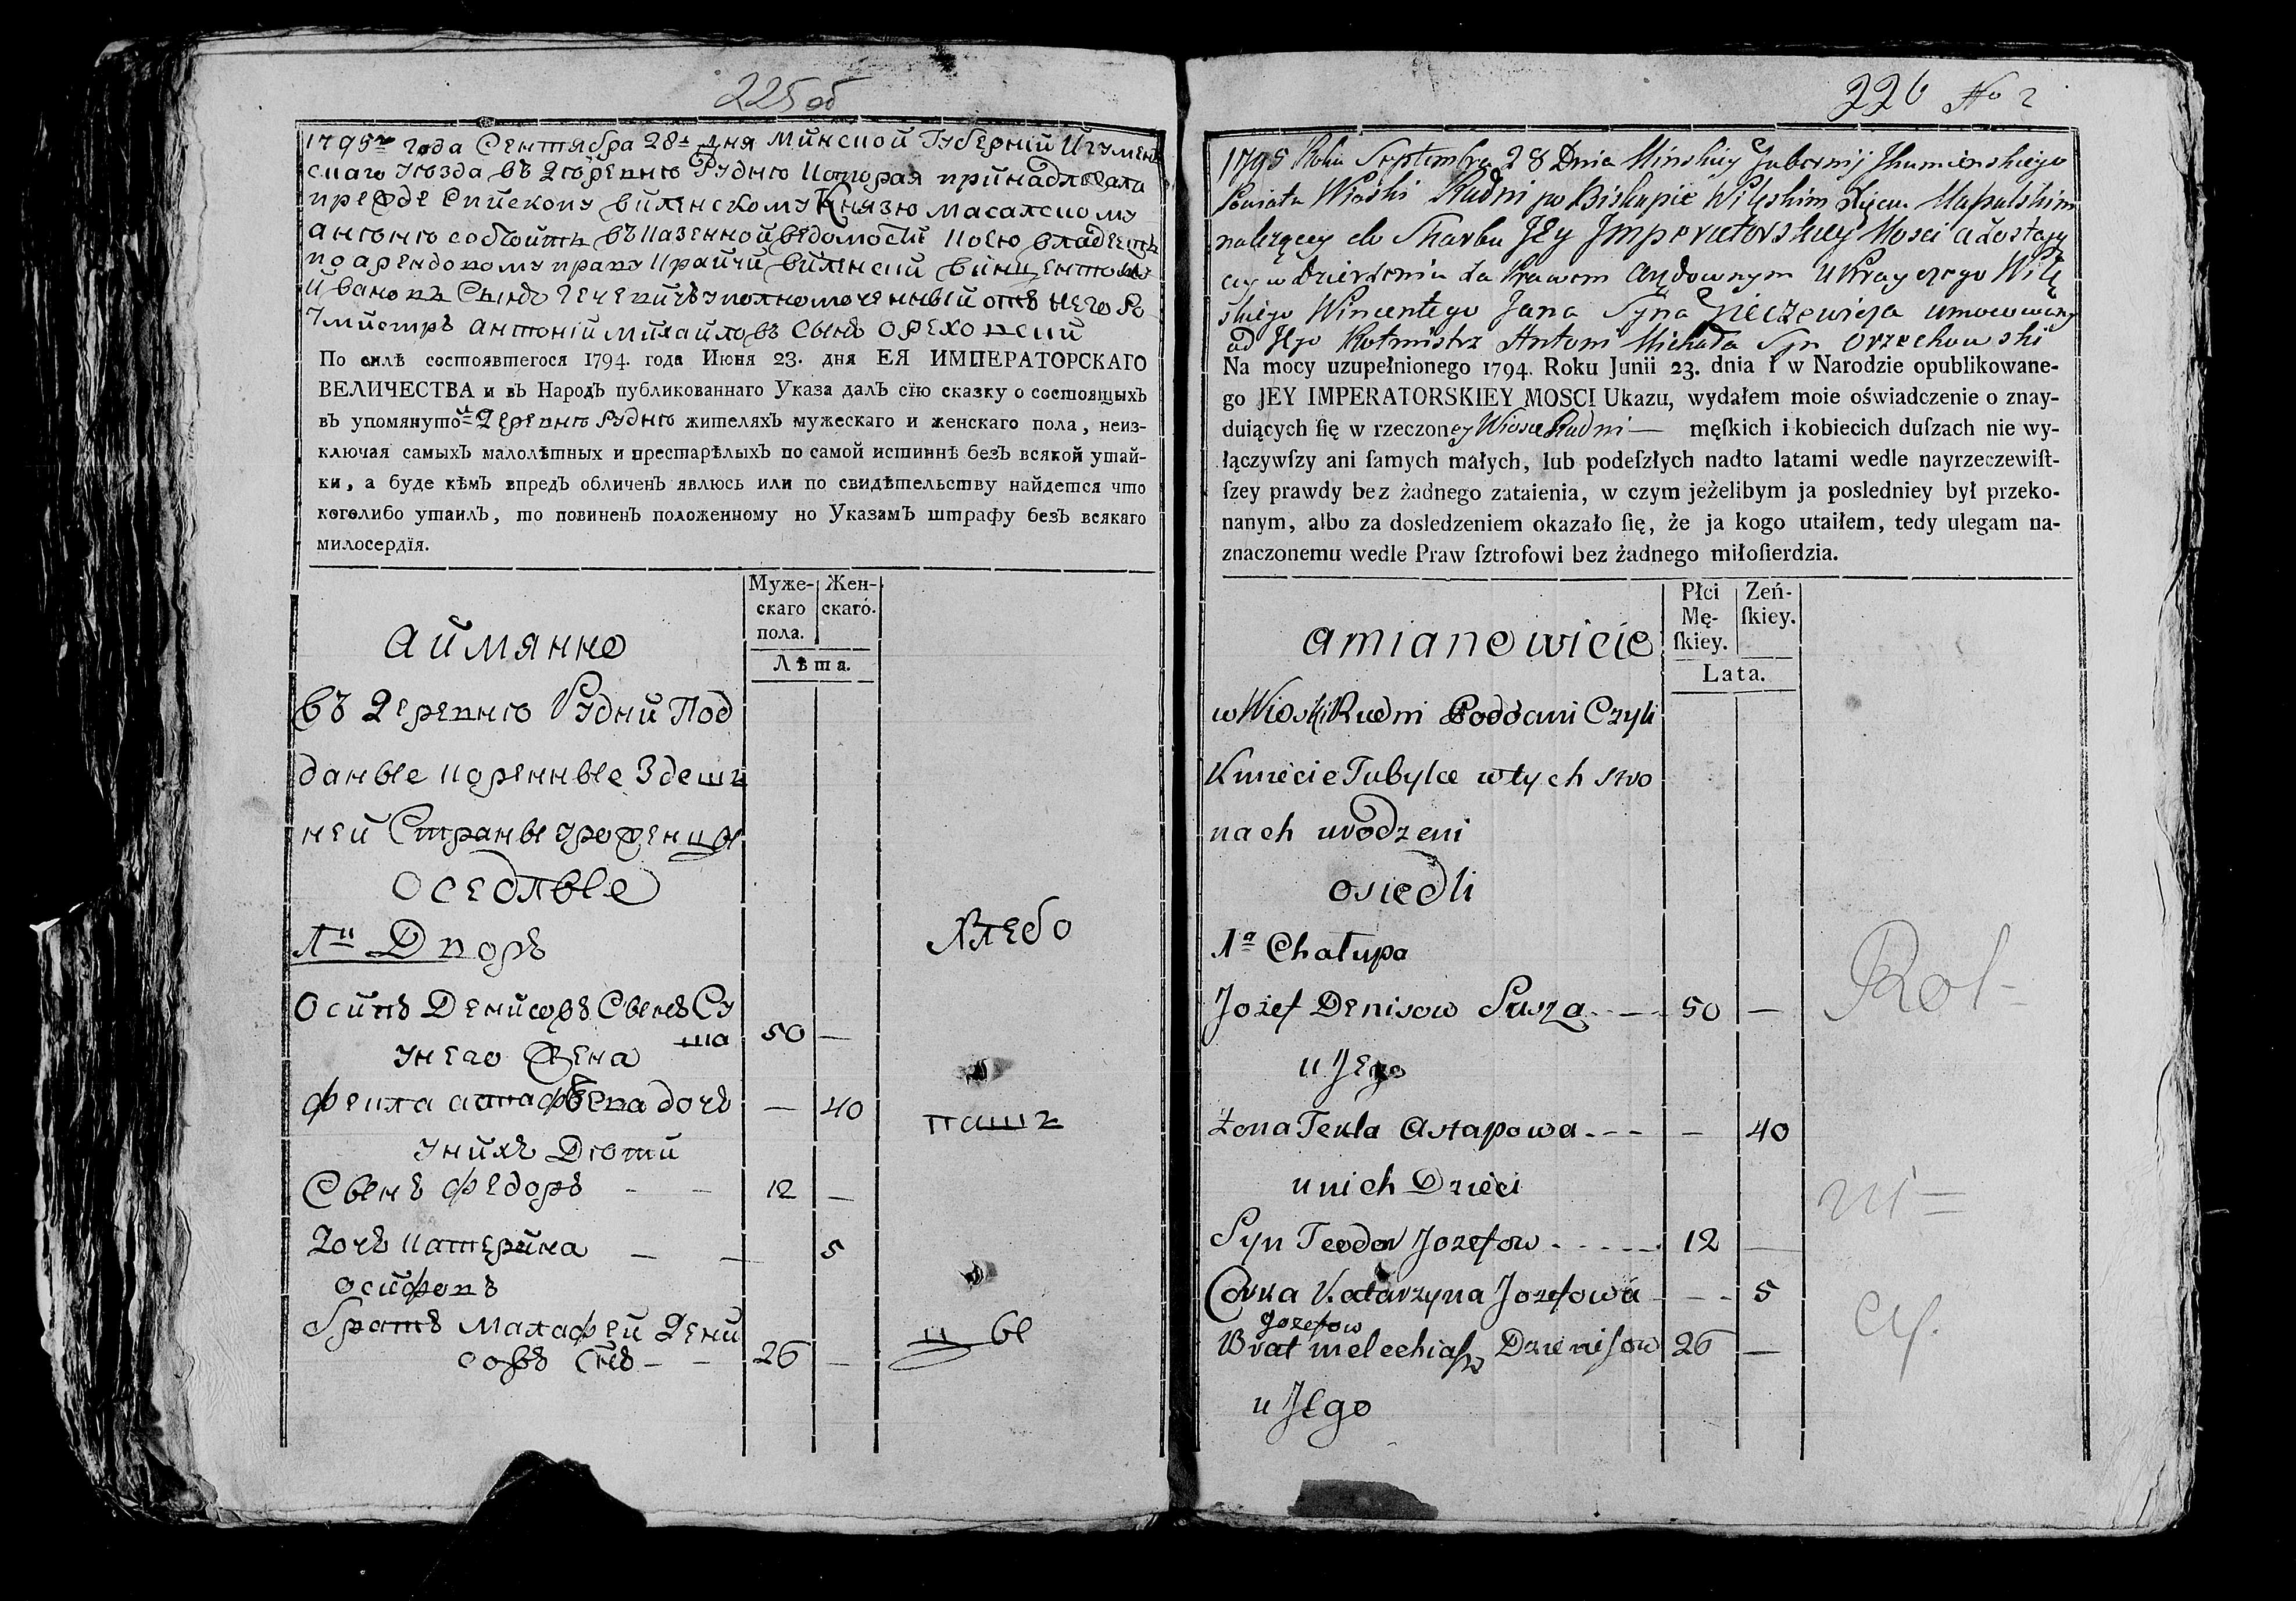 225 об
1795го года Сентября 28 дня Минской Губерний Игумен
скаго уезда въ деревню Рудню которая принадлежала
прежде Епископу виленскому Князю Масалскому
а ныне состоитъ въ казенной ведомости коею владеетъ
по арендовому праву Крайчий виленский винцентий
Ивановъ Сынъ Гечевичъ уполномоченный отъ него Ро
тмистръ Антоній михайловъ Сынъ ореховский
По силѣ состоявшегося 1794. года Июня 23. дня ЕЯ ИМПЕРАТОРСКАГО
ВЕЛИЧЕСТВА и въ Народъ публикованнаго Указа далъ сїю сказку о состоящыхъ
въ упомянутой деревню Рудню жителяхъ мужескаго и женскаго пола, неиз-
ключая самыхъ малолѣтных и престарѣлыхъ по самой истиннѣ безъ всякой утай-
ки, а буде кѣмъ впредъ обличенъ явлюсь или по свидѣтельству найдется что
коголибо утаилъ, то повиненъ положенному по Указамъ штрафу безъ всякаго
милосердїя.
Муже-
скаго
пола.
Жен-
скаго.
Лѣта.
а ймянно
въ деревню Рудни Под
даные коренные Здешъ
ней Страны уроженцы
оседлые
1й Дворъ
Осипъ Денисовъ Сынъ Су
ша 50 —
у него Жена
фекла астафьева дочь — 40
у нихъ Дюти
Сынъ федоръ - - 12 —
дочь катерина — — 5
осифовъ
братъ малафей Дени
совъ Снъ — - 26 —
хлебо
паш
ц ы
226 No 2
1795 Roku Septembra 28 Dnia Minskiey Gubernij Jhumienskiego
Powiatu Wioski Rudni po Biskupie Wileńskim Xięciu Massalskim
należący do Skarbu Jey Jmperatorskiey Mosci a zostaią
cey w dzierżeniu za Prawem arędownym u Krayczego Wileń
skiego Wincentego Jana Syna Gieczewicza umocowany
od Jego Rotmistrz Antoni Michała Syn Orzechowski
Na mocy uzupełnionego 1794. Roku Junii 23. dnia i w Narodzie opublikowane-
go JEY IMPERATORSKIEY MOSCI Ukazu, wydałem moie oświadczenie o znay-
duiących ſię w rzeczoney Wiosce Rudni — męſkich i kobiecich duſzach nie wy-
łączywſzy ani ſamych małych, lub podeſzłych nadto latami wedle nayrzeczewiſt-
ſzey prawdy bez żadnego zataienia, w czym jeżelibym ja posledniey był przeko-
nanym, albo za dosledzeniem okazało ſię, że ja kogo utaiłem, tedy ulegam na-
znaczonemu wedle Praw ſztrofowi bez żadnego miłoſierdzia.
Płci
Mę-
ſkiey.
Zeń-
ſkiey.
Lata.
a mianowicie
w Wioski Rudni Poddani Czyli
Kmiecie Tubylce w tych stro
nach urodzeni
osiedli
1a Chałupa
Jozef Denisow Susza - - — 50 —
u Jego
Żona Tekla Astapowa - - - — 40
u nich Dzieci
Syn Teodor Jozefow - - - - 12 —
Corka Katarzyna Jozefowa - - - 5
Jozefow
Brat melechiasz Dzienisow 26 —
u Jego
Rol-
ni=
cy.